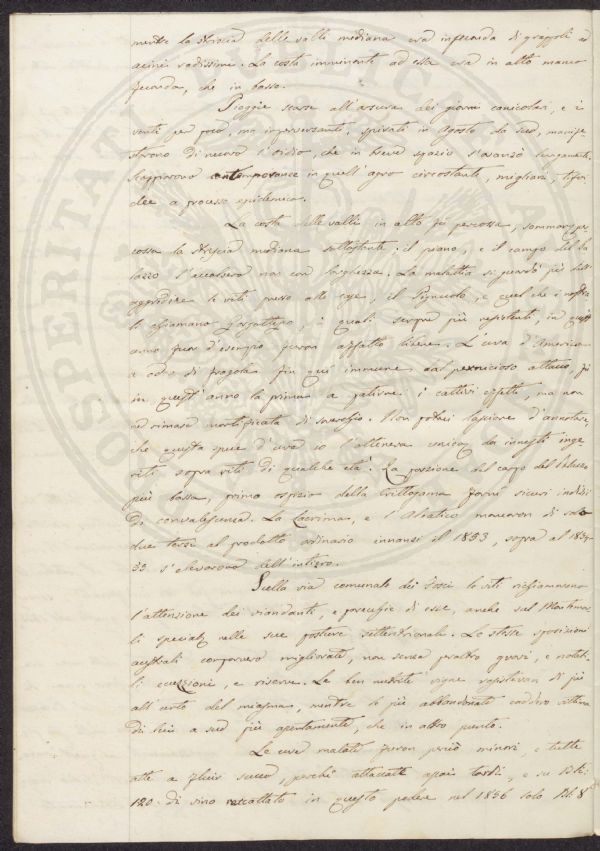 mentre la striscia delle valli mediana era infeconda di grappoli ed
acini radissimi. La costa imminente ad essa era in alto manco
feconda, che in basso.
Pioggie scarse all'arsura dei giorni canicolari, e i
venti per poco, ma imperversanti, spirati in Agosto da Sud, manife
starono di nuovo l'oidio, che in breve spazio s'avanzò lungamente.
Scoppiarono contemporanee in quell'agro circostante, migliari, tifoi
dee a processo epidemico.
La costa delle valli in alto fu percossa, sommamente per
cossa la striscia mediana sottostante: il piano, e il campo del Pa
lazzo s'accossero non con larghezza. La malattia si guardò più dall'
aggredire le viti presso alle case, il Pignuolo, e quel che i nostra
li chiamano Gaspattepo, i quali sempre più resistenti, in quest'
anno fuor d'esempio furon affatto libere. L'uva d'America
a odor di fragola fin qui immune dal pernicioso attacco, fu
in quest'anno la prima a patirne i cattivi effetti, ma non
ne rimase mortificata di soverchio. Non potrei lasciare d'annotare,
che questa specie d'uva io l'ottenera unica da innesti inge
riti sopra viti di qualche età. La porzione del campo del Palazzo
più bassa, primo ospizio della crittogama fornì sicuri indizi
di convalescenza. La Lacrima, e l'Aleatico mancaron di solo
due terzi al prodotto ordinario innanzi il 1853, sopra al 1854
55 s'elevarono dell'intiero.
Sulla via comunale dei Fosci le viti richiamavano
l'attenzione dei viandanti, e parecchie di esse, anche sul Montino
li specialm. nelle sue posture settentrionali. Le stesse sposizioni
australi comparvero migliorate, non senza peraltro guasti, e notabi
li eccezioni, e riserve. Le ben nutrite vigne resistevan di più
all'urto del miasma, mentre le più abbandonate caddero vittima
di lui a sud più apertamente, che in altro punto.
Le uve malate furon perciò minori, e tutte
atte a fluir succo, perchè attaccate assai tardi, e su Bli.
120 di vino raccattato in questo podere nel 1856 solo Bli. 8